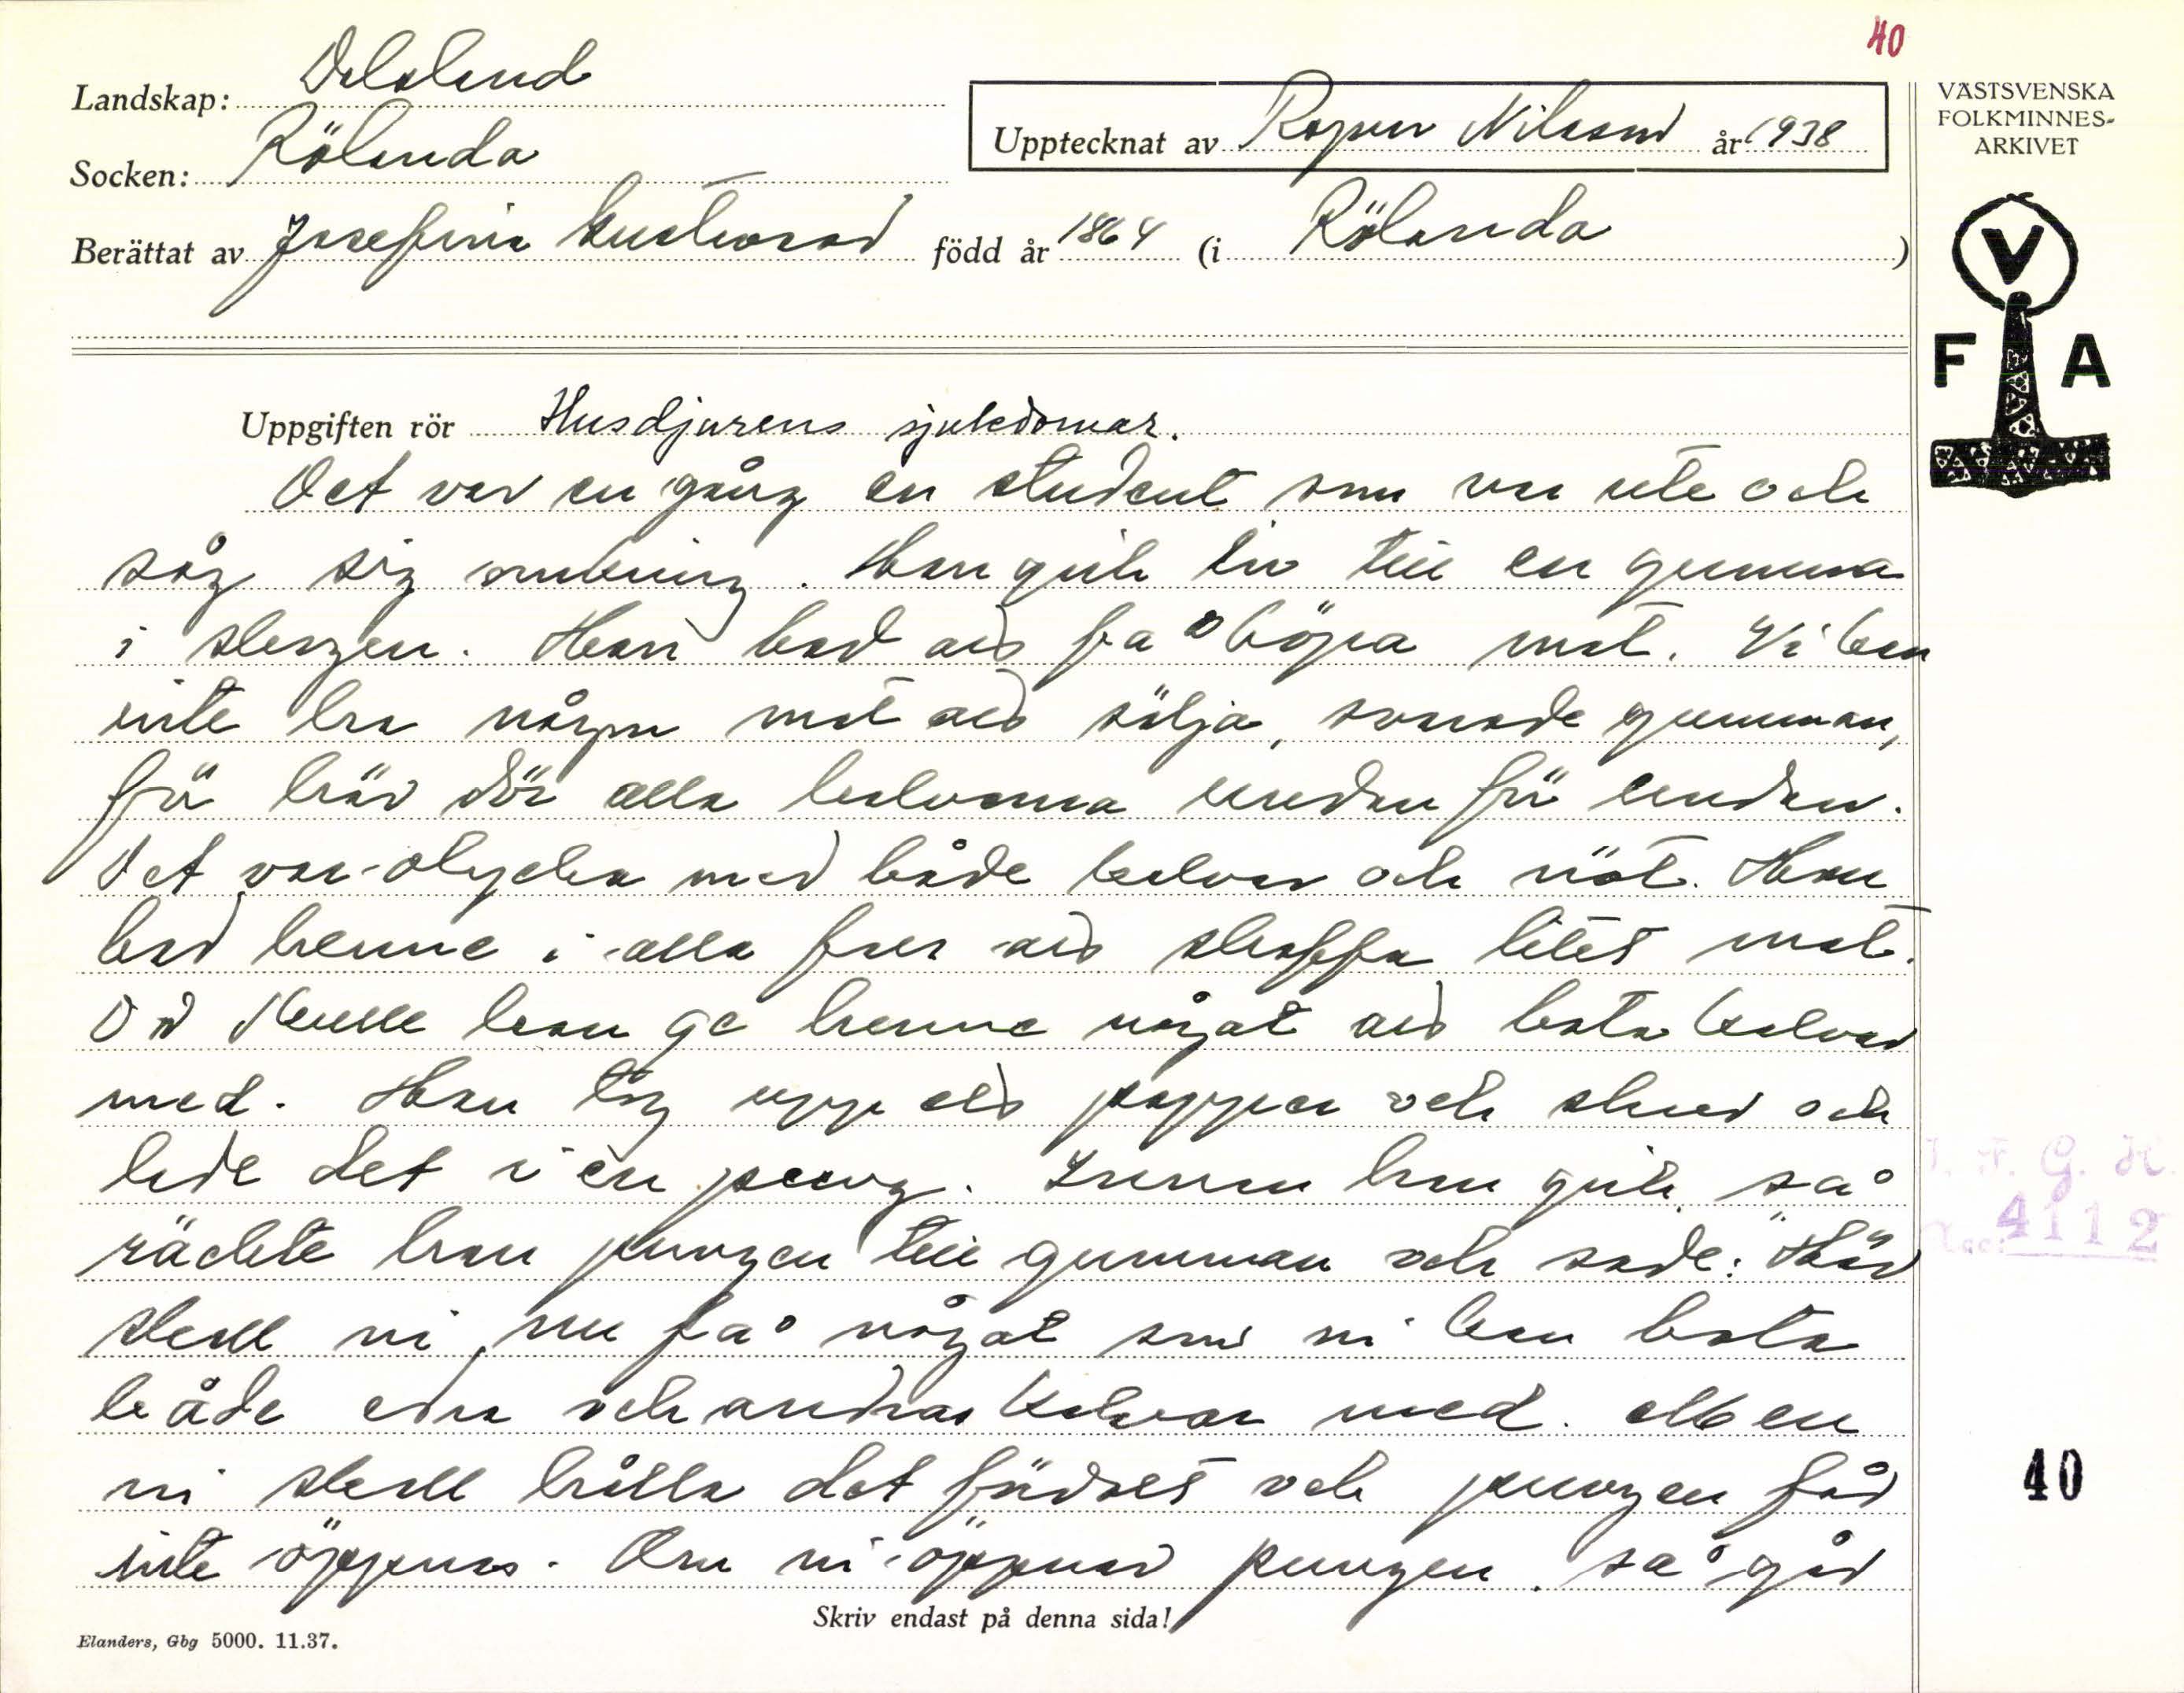 40
Landskap: Dalsland
Socken: Rölanda
Upptecknat av Ragnar Nilsson år 1938
Berättat av Josefina Gustavsson född år 1864 (i Rölanda )
VÄSTSVENSKA
FOLKMINNES-
ARKIVET
V
F A
Uppgiften rör Husdjurens sjukdomar.
Det var en gång en student som var ute och
såg sig omkring. Han gick in till en gumma
i skogen. Han bad att få köpa mat. Vi kan
inte ha någon mat att sälja, svarade gumman,
för här dör alla kalvarna undan för undan.
Det var olycka med både kalvar och nöt. Han
bad henne i alla fall att skaffa litet mat.
Då skulle han ge henne något att bota kalvar
med. Han tog upp ett papper och skrev och
lade det i en pung. Innan han gick så
räckte han pungen till gumman och sade: "Här
skall ni nu få något som ni kan bota
både edra och andras kalvar med. Men
ni skall hålla det fördolt och pungen får
inte öppnas. Om ni öppnar pungen så går
Skriv endast på denna sida!
Elanders, Gbg 5000. 11.37.
I. F. G. H.
Acc. 4112
40